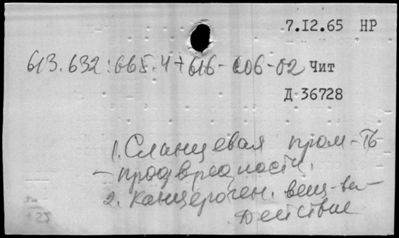 7.I2.65 НР
613.632:665.4+616-006-02 Чит
Д 36728
1. Сланцевая пром-ть
- профвредности.
2. Канцероген. вещ-ва-
Действие